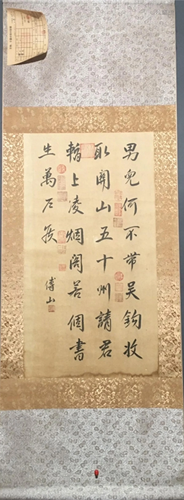 男兒何不帶吳鉤收
取關山五十州請君
暫上凌烟閣若個書
生萬戶侯
傅山